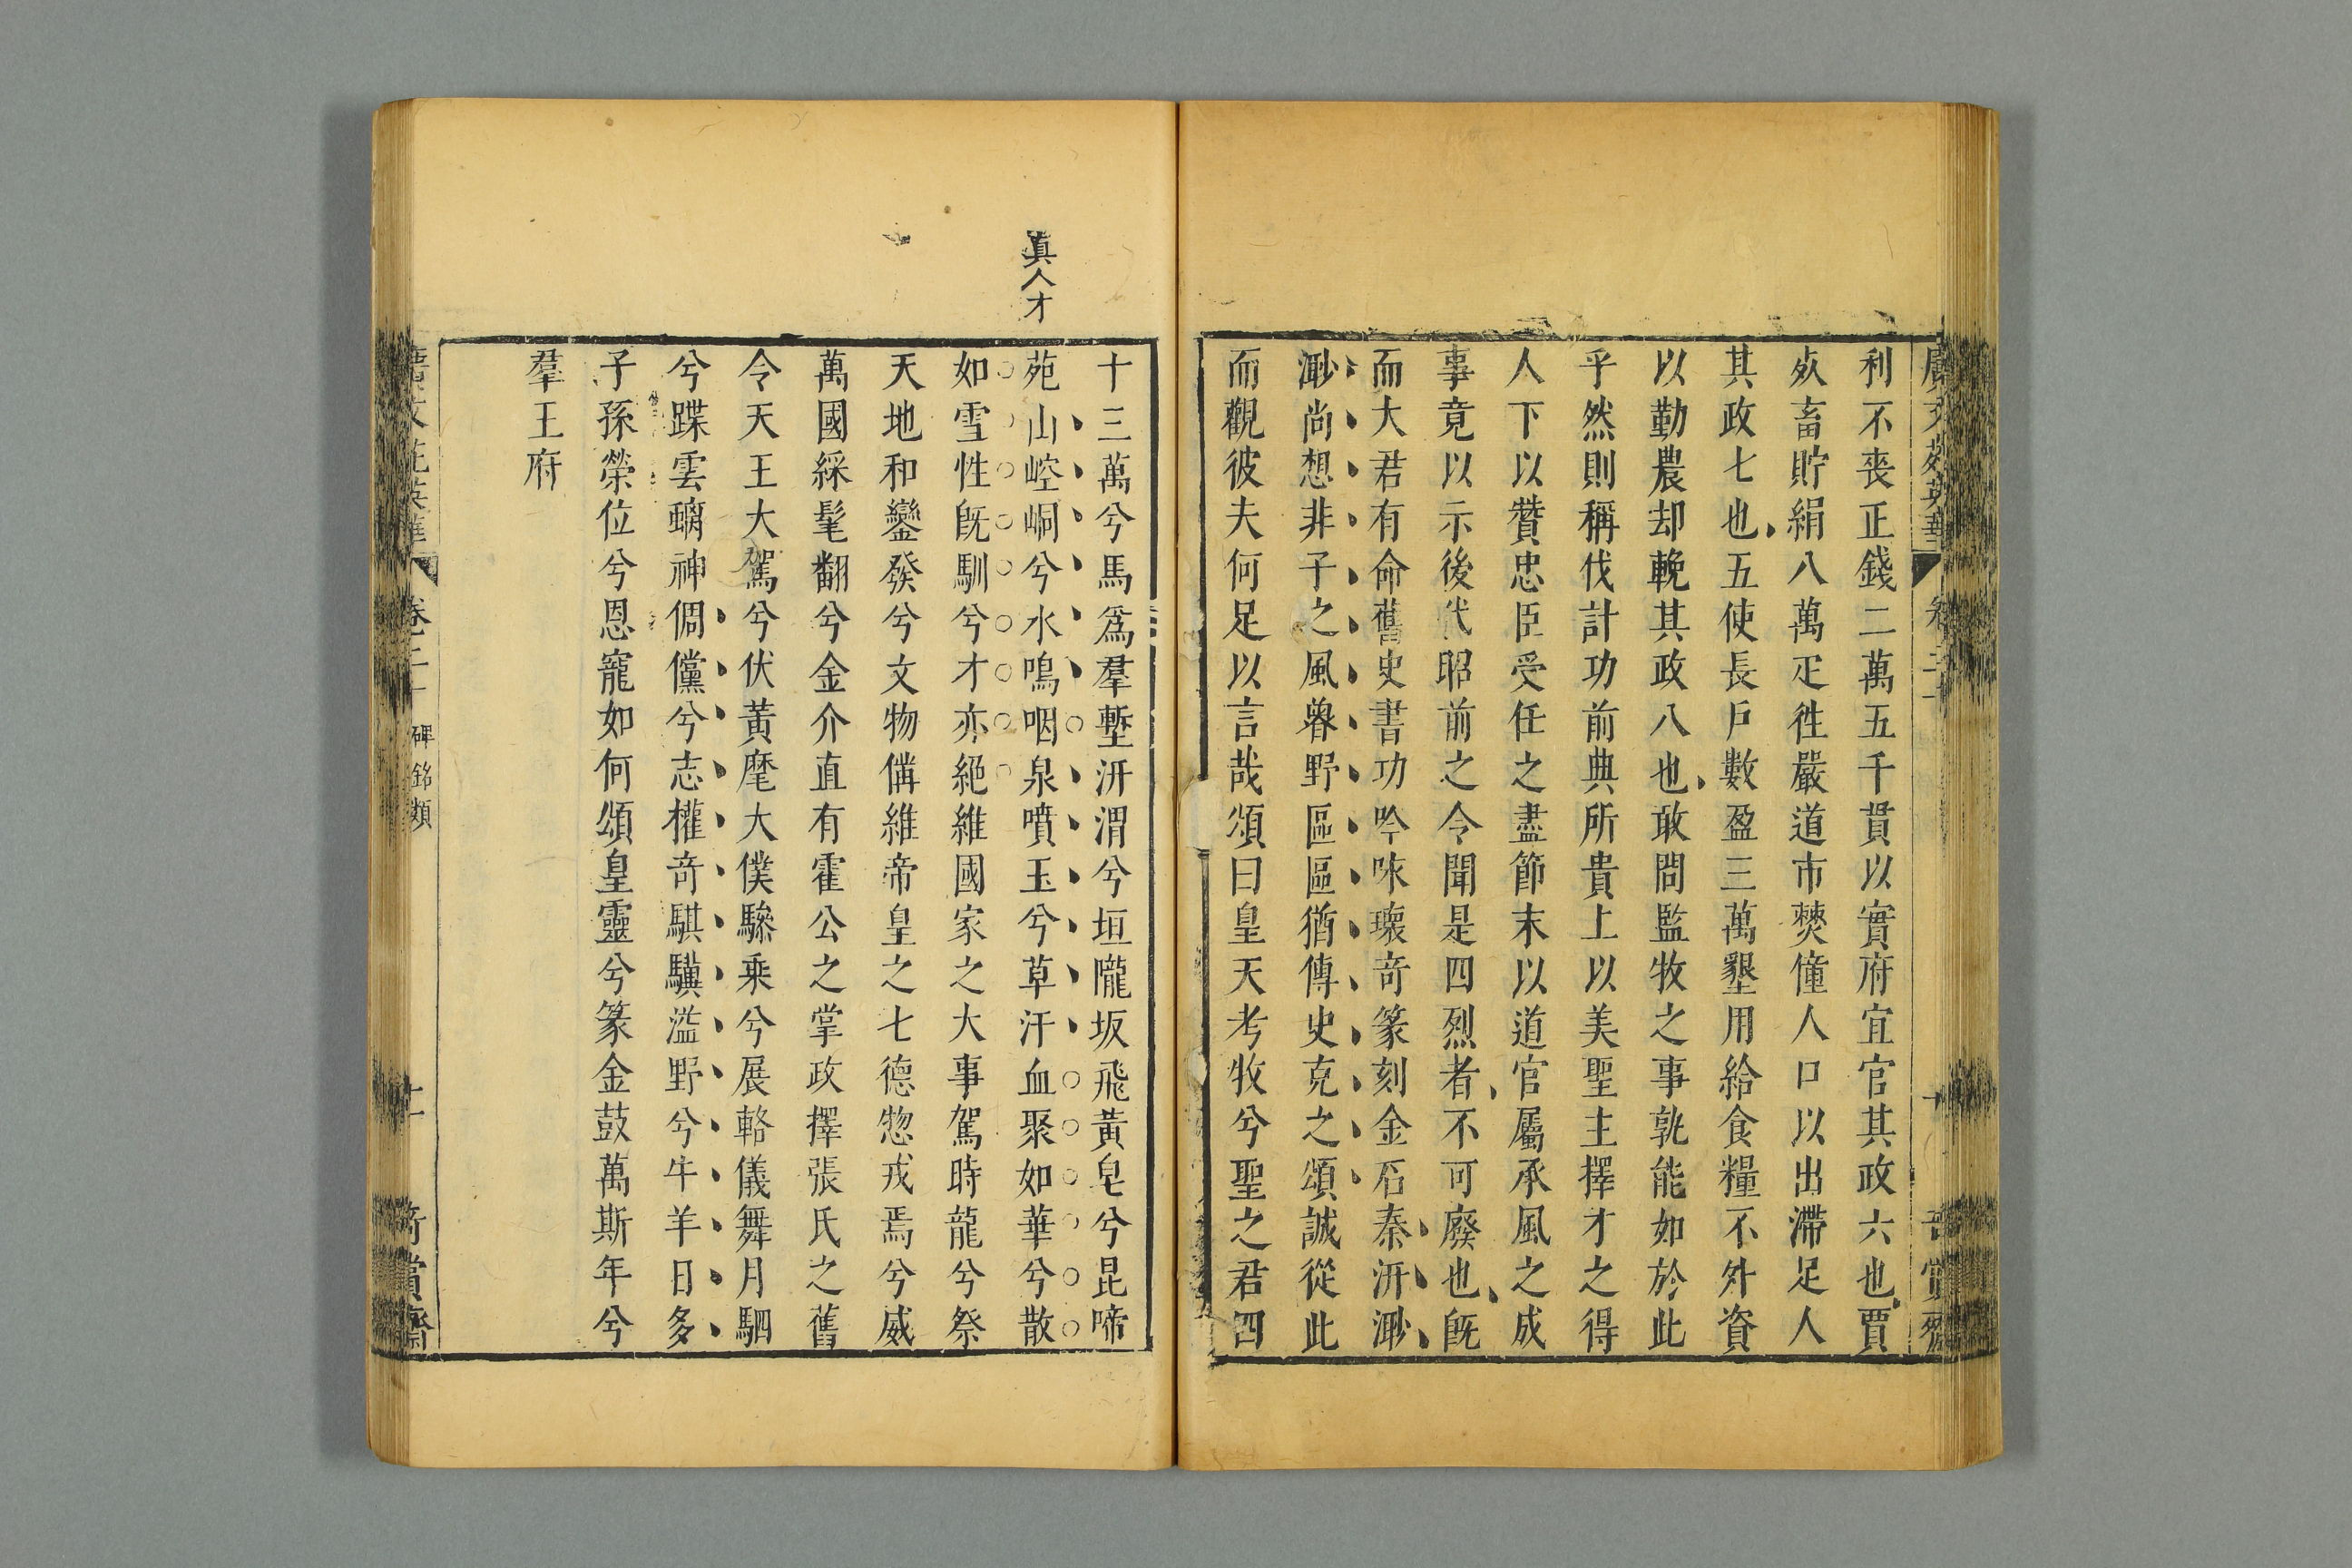 利不喪正錢二萬五千貫以實府宜官其政六也賈
㸃畜貯絹八萬疋徃嚴道市僰僮人口以出滯足人
其政七也五使長戸數盈三萬墾用給食糧不外資
以勤農却輓其政八也敢問監牧之事孰能如於此
乎然則稱伐計功前典所貴上以美聖主擇才之得
人下以贊忠臣受任之盡節末以道官屬承風之成
事竟以示後代昭前之令聞是四烈者不可廢也旣
而大君有命舊史書功吟咏瓌竒篆刻金石秦汧渺
渺尚想非子之風魯野區區猶傳史克之頌誠從此
而觀彼夫何足以言哉頌曰皇天考牧兮聖之君四
真人才
十三萬兮馬爲羣塹汧渭兮垣隴坂飛黃皂兮昆啼
苑山崆峒兮水鳴咽泉噴玉兮草汗血聚如華兮散
如雪性旣馴兮才亦絕維國家之大事駕時龍兮祭
天地和鑾發兮文物備維帝皇之七德惣戎焉兮威
萬國綵髦翻兮金介直有霍公之掌政擇張氏之舊
令天王大駕兮伏黃麾大僕驂乘兮展輅儀舞月駟
兮蹀雲螭神倜儻兮志權竒騏驥溢野兮牛羊日多
子孫榮位兮恩寵如何頌皇靈兮篆金鼓萬斯年兮
羣王府
碑銘類